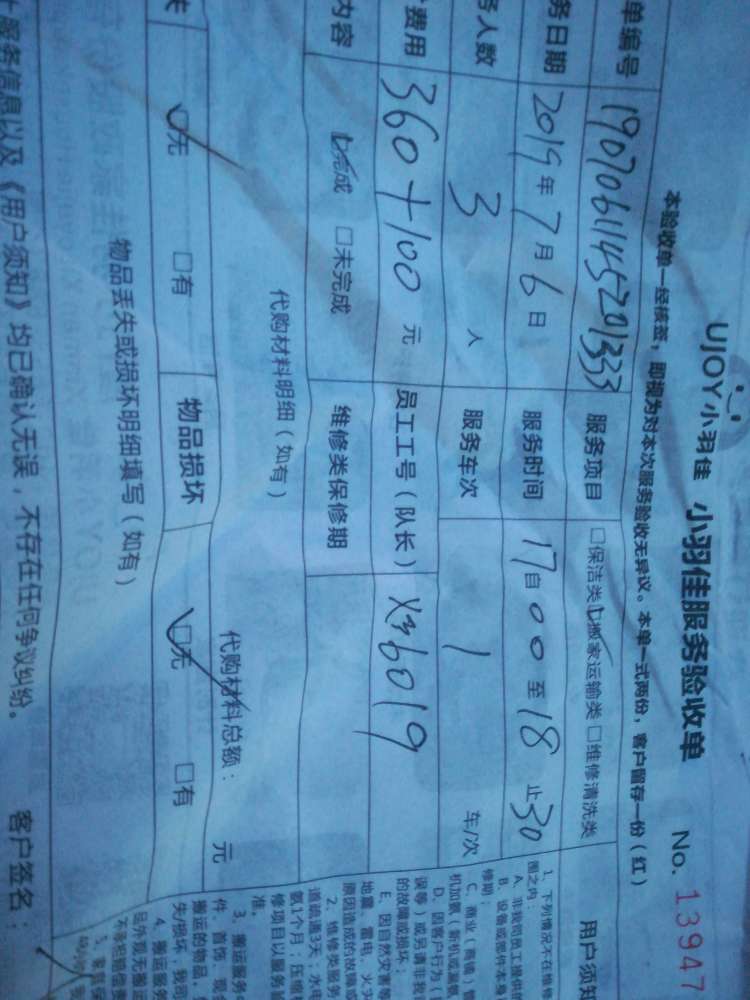 UJOY小羽佳 小羽佳服务验收单 No. 13947
本验收单一经核签，即视为对本次服务验收无异议。本单一式两份，客户留存一份（红）
单编号 1907061145201333 服务项目 □保洁类 ☑搬家运输类 □维修清洗类
务日期 2019年7月6日 服务时间 17自00至18止30
务人数 3人 服务车次 1 车/次
费用 360+100 元 员工工号（队长） X36019
内容 ☑完成 □未完成 维修类保修期
代购材料明细（如有）
代购材料总额： 元
失 ☑无 □有 物品损坏 ☑无 □有
物品丢失或损坏明细填写（如有）
服务信息以及《用户须知》均已确认无误，不存在任何争议纠纷。
客户签名：
用户须知
1、下列情况不在维
围之内：
A、非我司员工提供的
B、设备或部件本身
修期；
C、商业（商铺）
机加氟（新机或漏氟
D、因客户行为（
误等）或另请非我
的故障或损坏；
E、因自然灾害等
地震、雷电、火灾
原因造成的故障或
2、维修类服务
道疏通3天；水电
氨1个月；压缩
修项目以服务
准。
3、搬运服务
件、首饰、现金
搬运的物品，
失/损坏，我司
4、搬运服务
品外观无搬运
不承担赔偿责